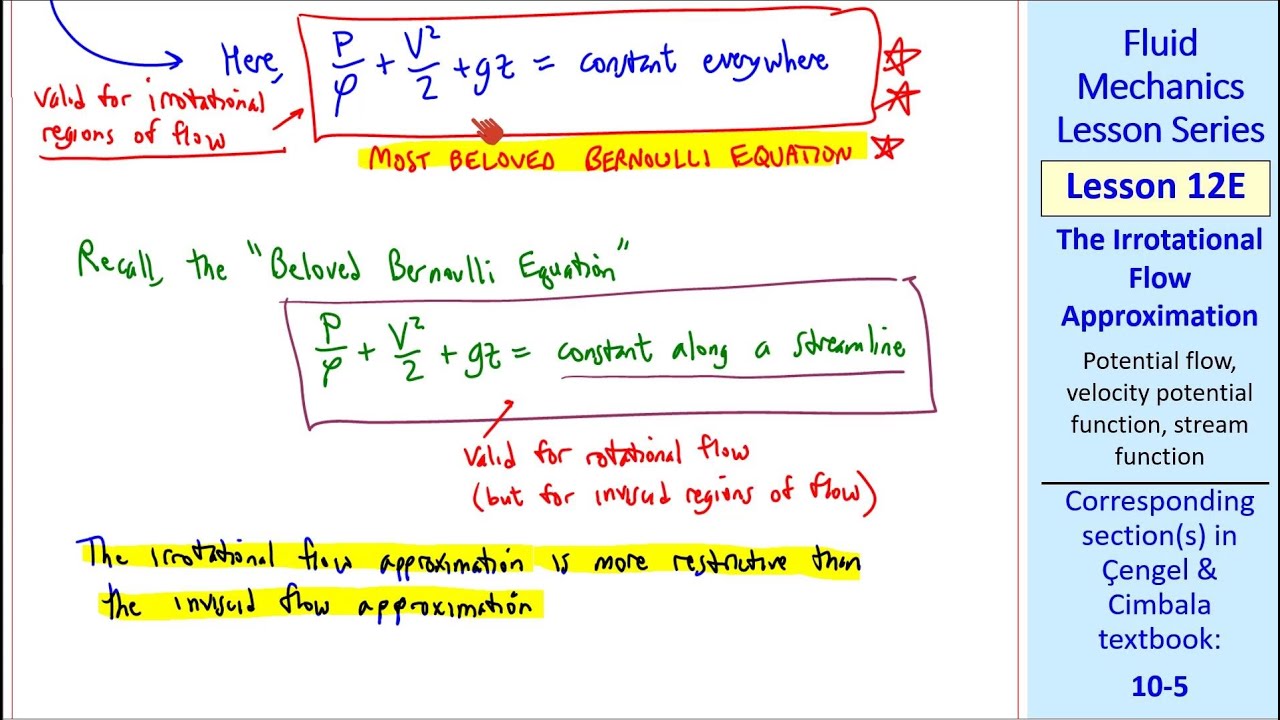 Here, P/ρ + V²/2 + gz = constant everywhere
Valid for irrotational
regions of flow
MOST BELOVED BERNOULLI EQUATION
Recall, the "Beloved Bernoulli Equation"
P/ρ + V²/2 + gz = constant along a streamline
Valid for rotational flow
(but for inviscid regions of flow)
The irrotational flow approximation is more restrictive than
the inviscid flow approximation
Fluid
Mechanics
Lesson Series
Lesson 12E
The Irrotational
Flow
Approximation
Potential flow,
velocity potential
function, stream
function
Corresponding
section(s) in
Çengel &
Cimbala
textbook:
10-5